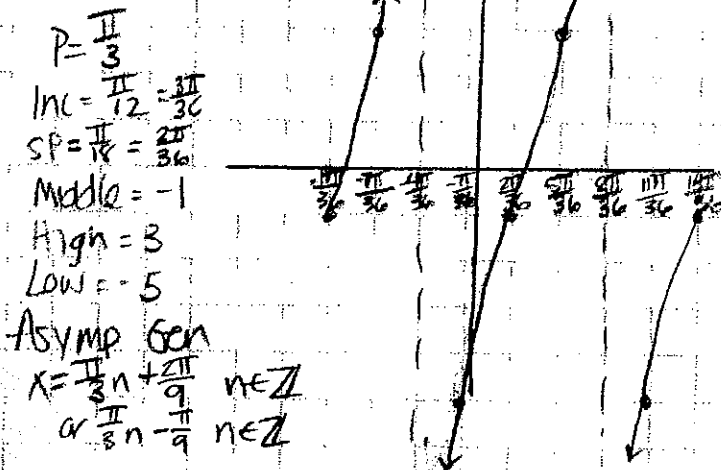 P = π/3
Inc = π/12 = 3π/36
SP = π/18 = 2π/36
Middle = -1
High = 3
Low = -5
Asymp Gen
x = π/3 n + 2π/9 n∈ℤ
or π/3 n - π/9 n∈ℤ
-7π/36 -4π/36 -π/36 2π/36 5π/36 8π/36 11π/36 14π/36